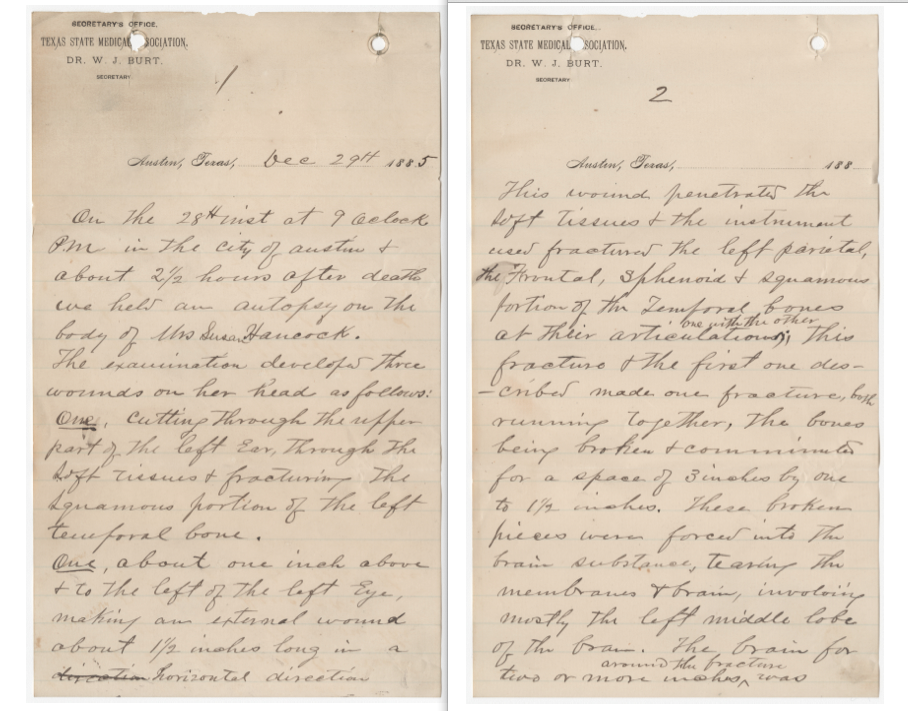 SECRETARY'S OFFICE.
TEXAS STATE MEDICAL ASSOCIATION.
DR. W. J. BURT.
SECRETARY
1
Austin, Texas, Dec 29th 1885
On the 28th inst at 9 Oclock
P.M. in the city of austin &
about 2½ hours after death
we held an autopsy on the
body of Mrs Susan Hancock.
The examination developed three
wounds on her head as follows:
One, cutting through the upper
part of the left Ear, through the
soft tissues & fracturing the
squamous portion of the left
temporal bone.
One, about one inch above
& to the left of the left Eye,
making an external wound
about 1½ inches long in a
direction horizontal direction
SECRETARY'S OFFICE.
TEXAS STATE MEDICAL ASSOCIATION.
DR. W. J. BURT.
SECRETARY
2
Austin, Texas, 188
This wound penetrated the
soft tissues & the instrument
used fractured the left parietal,
the Frontal, Sphenoid & squamous
portion of the Temporal bones
at their articulations one with the other; this
fracture & the first one des-
-cribed made one fracture, both
running together, the bones
being broken & comminuted
for a space of 3 inches by one
to 1½ inches. These broken
pieces were forced into the
brain substance, tearing the
membranes & brain, involving
mostly the left middle lobe
of the brain. The brain for
two or more inches around the fracture was